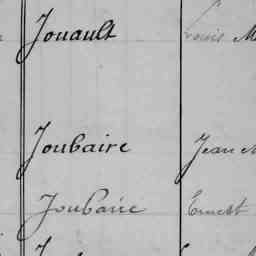 Jouault Louis M
Joubaire Jean M
Joubaire Ernest